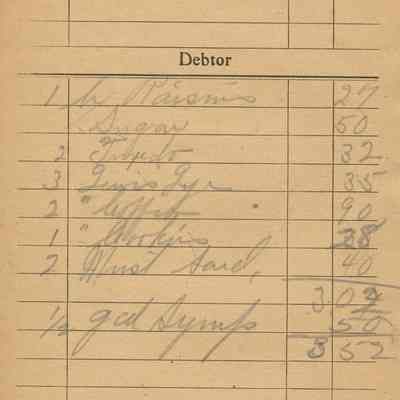 Debtor
1 lb Raisins 27
Sugar 50
2 32
3 Lewis Lye 35
2 " Coffee 90
1 " Cookies 28
2 Must Sard, 40
302
1/2 gal Syrup 50
352